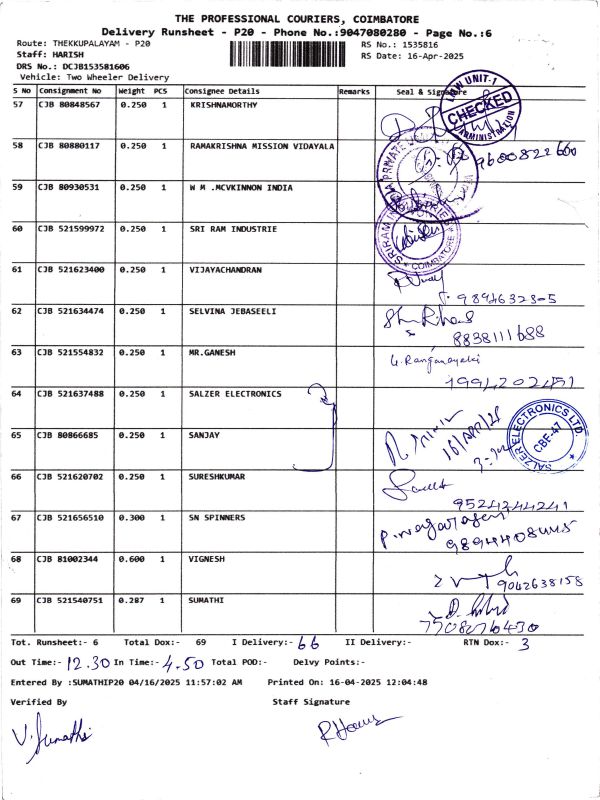 THE PROFESSIONAL COURIERS, COIMBATORE
Delivery Runsheet - P20 - Phone No.:9047080280 - Page No.:6
Route: THEKKUPALAYAM - P20 RS No.: 1535816
Staff: HARISH RS Date: 16-Apr-2025
DRS No.: DCJB153581606
Vehicle: Two Wheeler Delivery
S No Consignment No Weight PCS Consignee Details Remarks Seal & Signature
57 CJB 80848567 0.250 1 KRISHNAMORTHY
LAW UNIT-1 CHECKED ADMINISTRATION
58 CJB 80880117 0.250 1 RAMAKRISHNA MISSION VIDAYALA 9600822600
59 CJB 80930531 0.250 1 W M .MCVKINNON INDIA
60 CJB 521599972 0.250 1 SRI RAM INDUSTRIE
COIMBATORE
61 CJB 521623400 0.250 1 VIJAYACHANDRAN
62 CJB 521634474 0.250 1 SELVINA JEBASEELI
8838111688
63 CJB 521554832 0.250 1 MR.GANESH
64 CJB 521637488 0.250 1 SALZER ELECTRONICS
16/APR/25
SALZER ELECTRONICS LTD. CBE-47
65 CJB 80866685 0.250 1 SANJAY
66 CJB 521620702 0.250 1 SURESHKUMAR
9524344241
67 CJB 521656510 0.300 1 SN SPINNERS
68 CJB 81002344 0.600 1 VIGNESH
9042638158
69 CJB 521540751 0.287 1 SUMATHI
Tot. Runsheet:- 6 Total Dox:- 69 I Delivery:- 66 II Delivery:- RTN Dox:- 3
Out Time:- 12.30 In Time:- 4.50 Total POD:- Delvy Points:-
Entered By :SUMATHIP20 04/16/2025 11:57:02 AM Printed On: 16-04-2025 12:04:48
Verified By Staff Signature
V. Sumathi